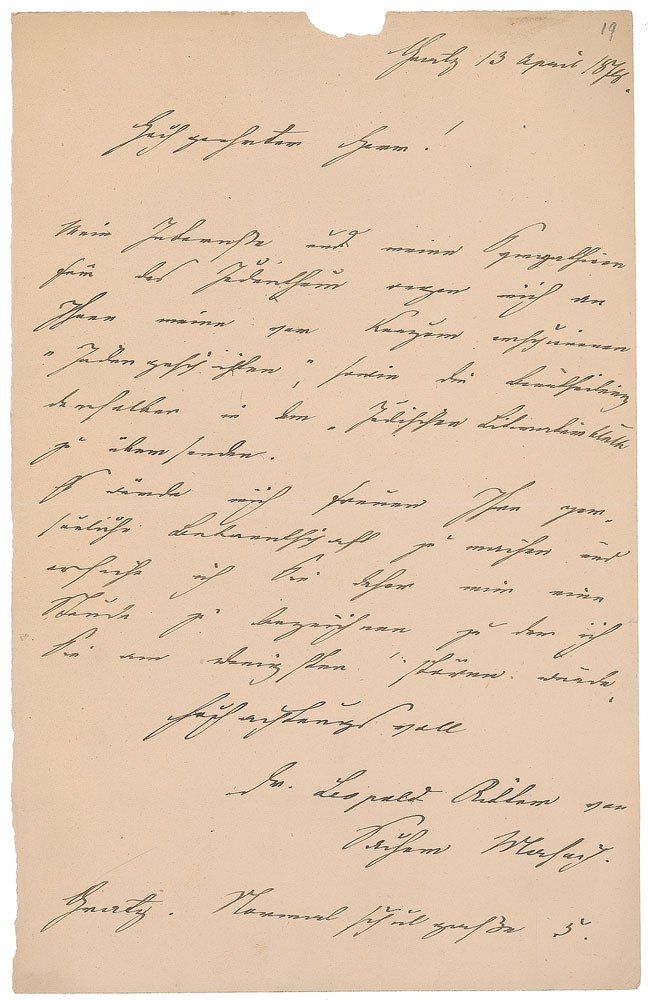 19
Gratz 13 April 1878.
Hochgeehrter Herr!
Mein Interesse und meine Sympathien
für das Judenthum regen mich an
Ihnen meine vor Kurzem erschienenen
„Judengeschichten", sowie die Beurtheilung
derselben in dem „Jüdischen Literaturblatt"
zu übersenden.
Es würde mich freuen Ihre per-
sönliche Bekanntschaft zu machen und
ersuche ich Sie daher mir eine
Stunde zu bezeichnen zu der ich
Sie am wenigsten stören würde.
Hochachtungsvoll
Dr. Leopold Ritter von
Sacher Masoch.
Gratz. Normalschulgaße 5.